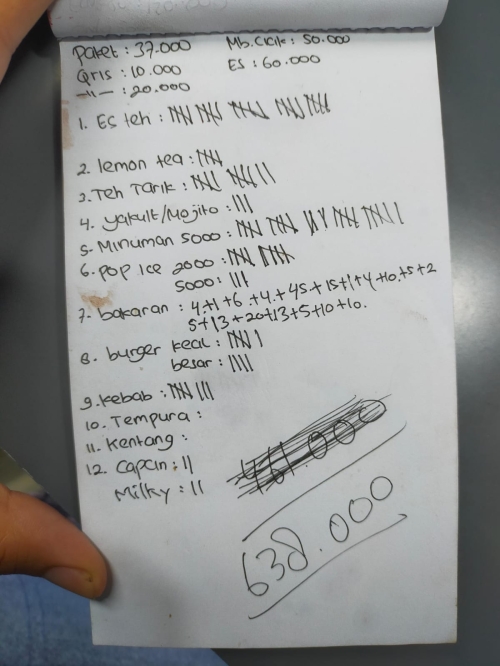 Paket : 37.000
Mb. Cicik : 50.000
Qris : 10.000
ES : 60.000
—"— : 20.000
1. Es teh : 𝍸 𝍸 𝍸 𝍸 𝍸
2. lemon tea : 𝍸
3. Teh Tarik : 𝍸 𝍸 ||
4. yakult/Mojito : |||
5. Minuman 5000 : 𝍸 𝍸 𝍸 𝍸 |
6. POP ice 2000 : 𝍸 𝍸
5000 : |||
7. bakaran : 4+1+6+4+45+15+1+4+10+5+2
5+13+20+13+5+10+10.
8. burger kcal : 𝍸 |
besar : ||||
9. kebab : 𝍸 |||
10. Tempura :
11. Kentang :
12. Capcin : ||
Milky : ||
638.000